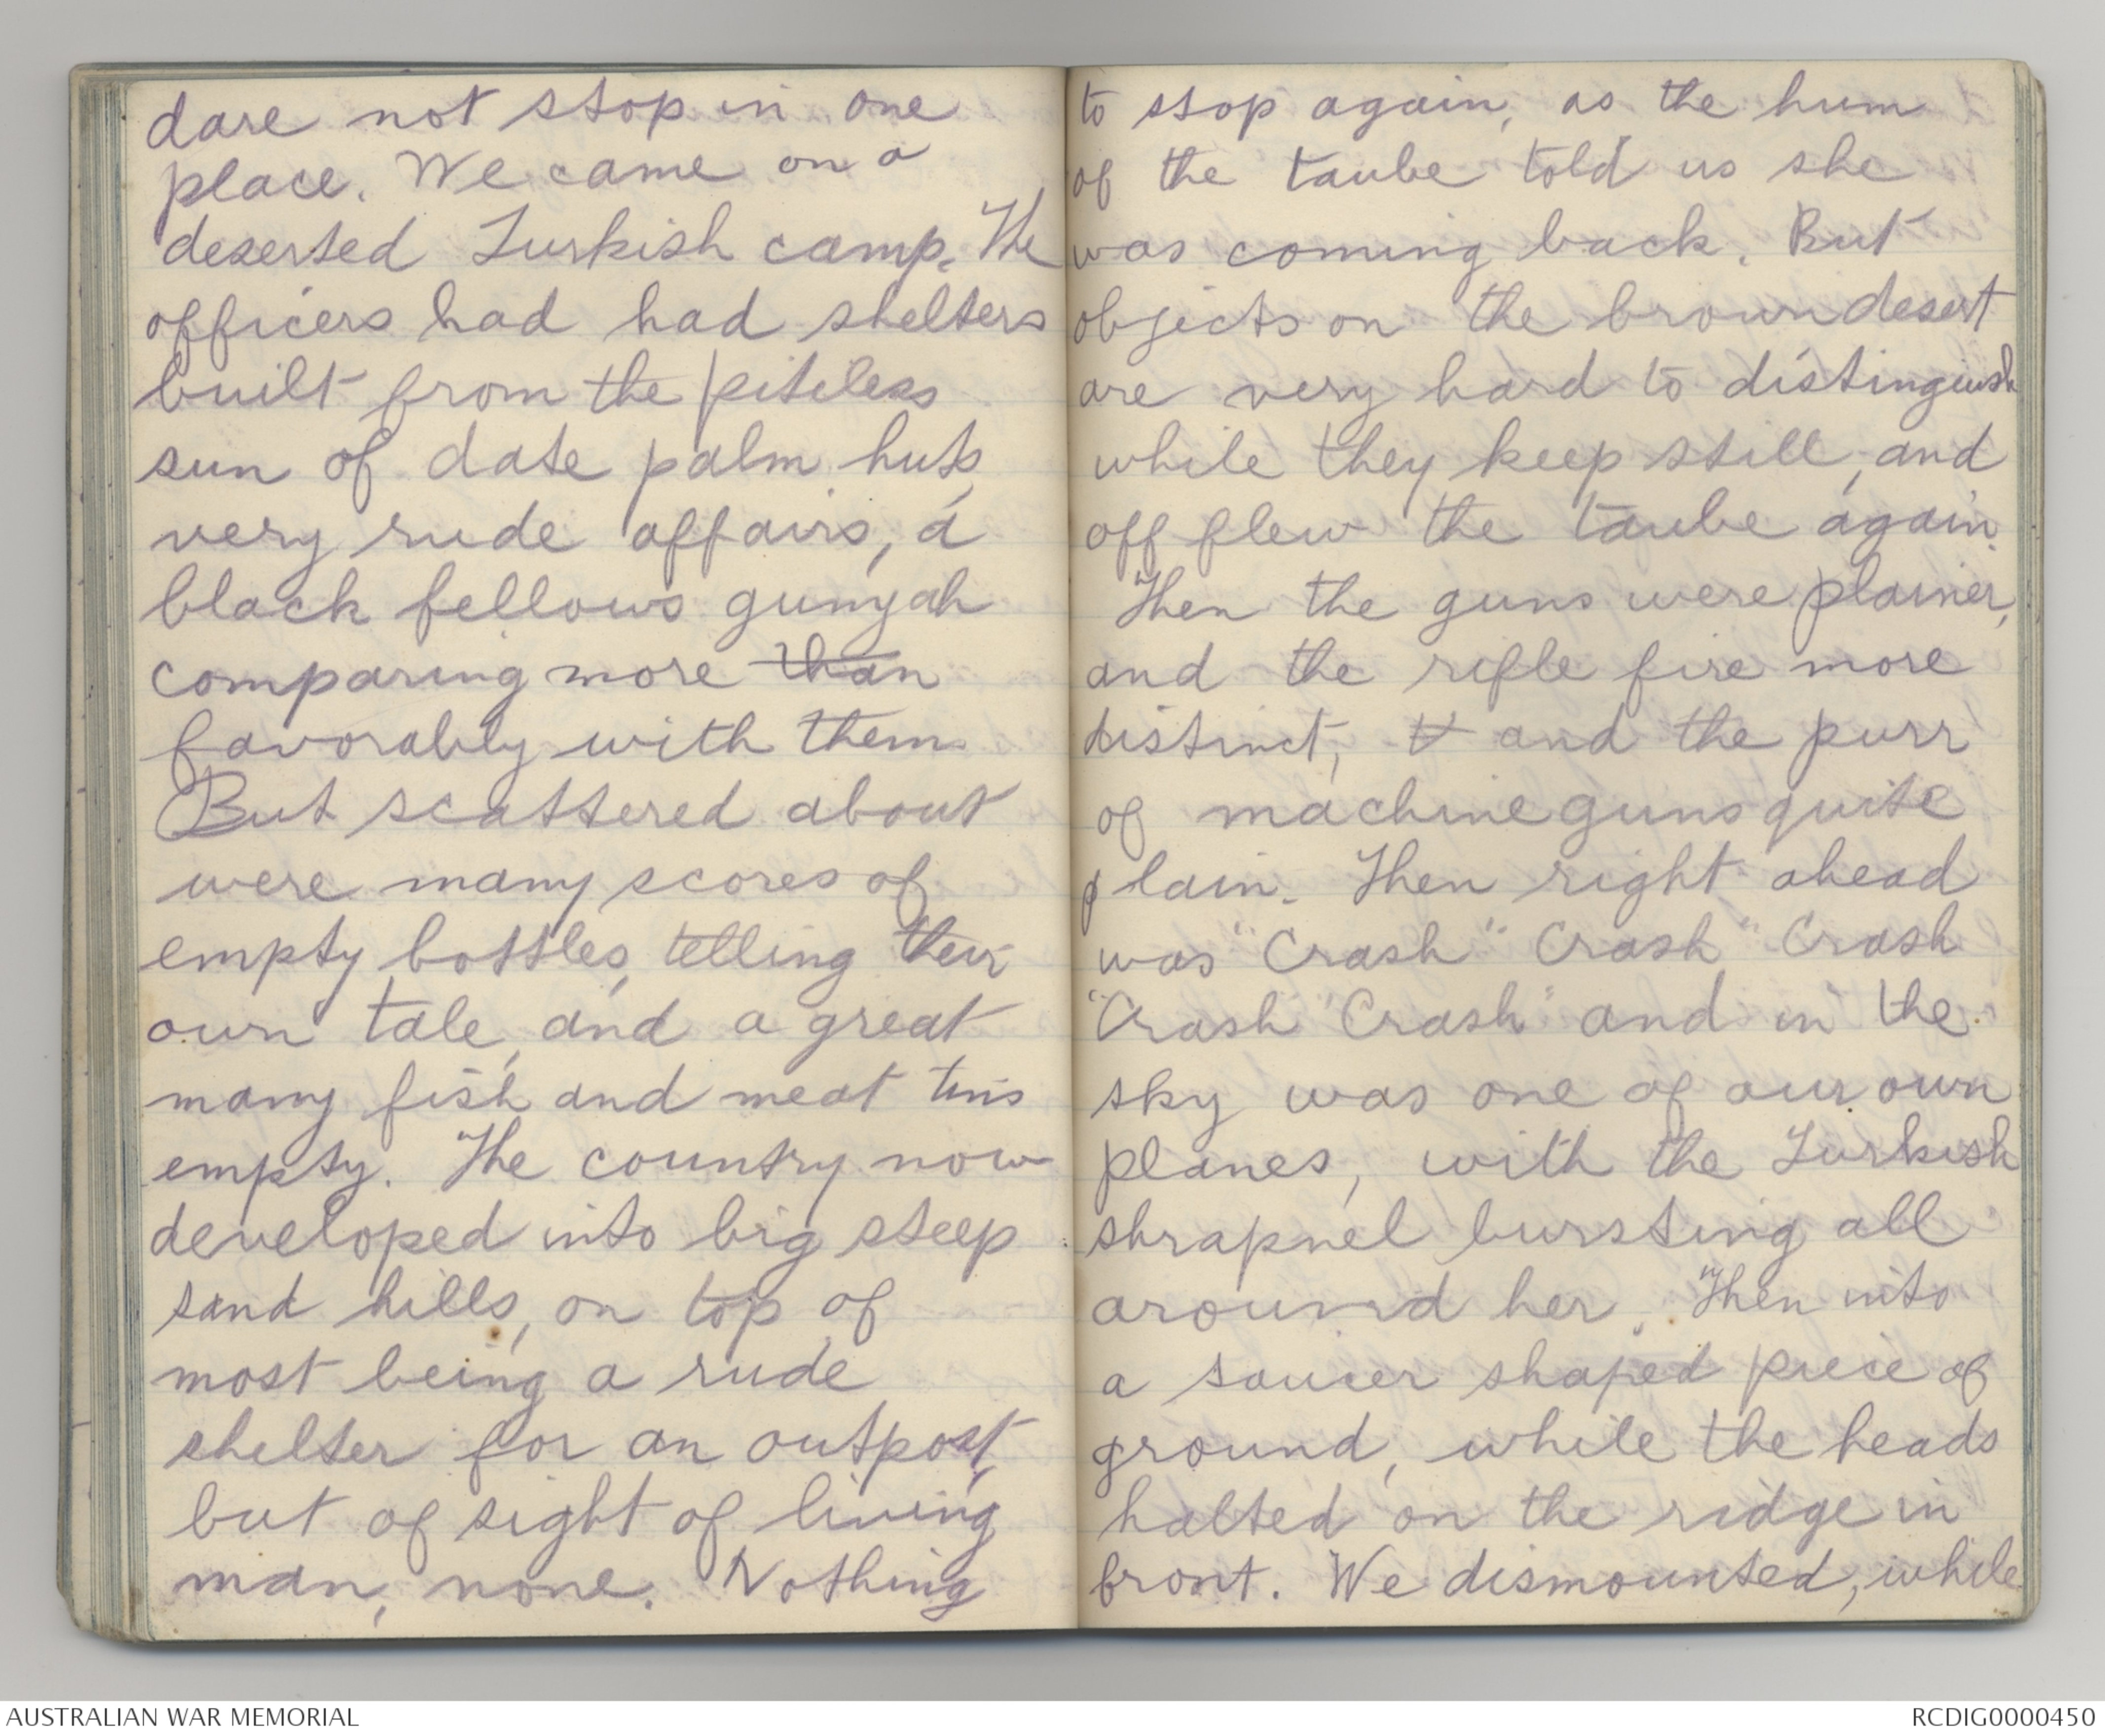 dare not stop in one
place. We came on a
deserted Turkish camp. The
officers had had shelters
built from the pitiless
sun of date palm huts,
very rude affairs, a
black fellows gunyah
comparing more than
favorably with them.
But scattered about
were many scores of
empty bottles, telling their
own tale, and a great
many fish and meat tins
empty. The country now
developed into big steep
sand hills, on top of
most being a rude
shelter for an outpost,
but of sight of living
man, none. Nothing
to stop again, as the hum
of the taube told us she
was coming back. But
objects on the brown desert
are very hard to distinguish
while they keep still, and
off flew the taube again.
Then the guns were plainer,
and the rifle fire more
distinct, and the purr
of machine guns quite
plain. Then right ahead
was "Crash" Crash "Crash
"Crash "Crash" and in the
sky was one of our own
planes, with the Turkish
shrapnel bursting all
around her. Then into
a saucer shaped piece of
ground, while the heads
halted on the ridge in
front. We dismounted, while
AUSTRALIAN WAR MEMORIAL
RCDIG0000450